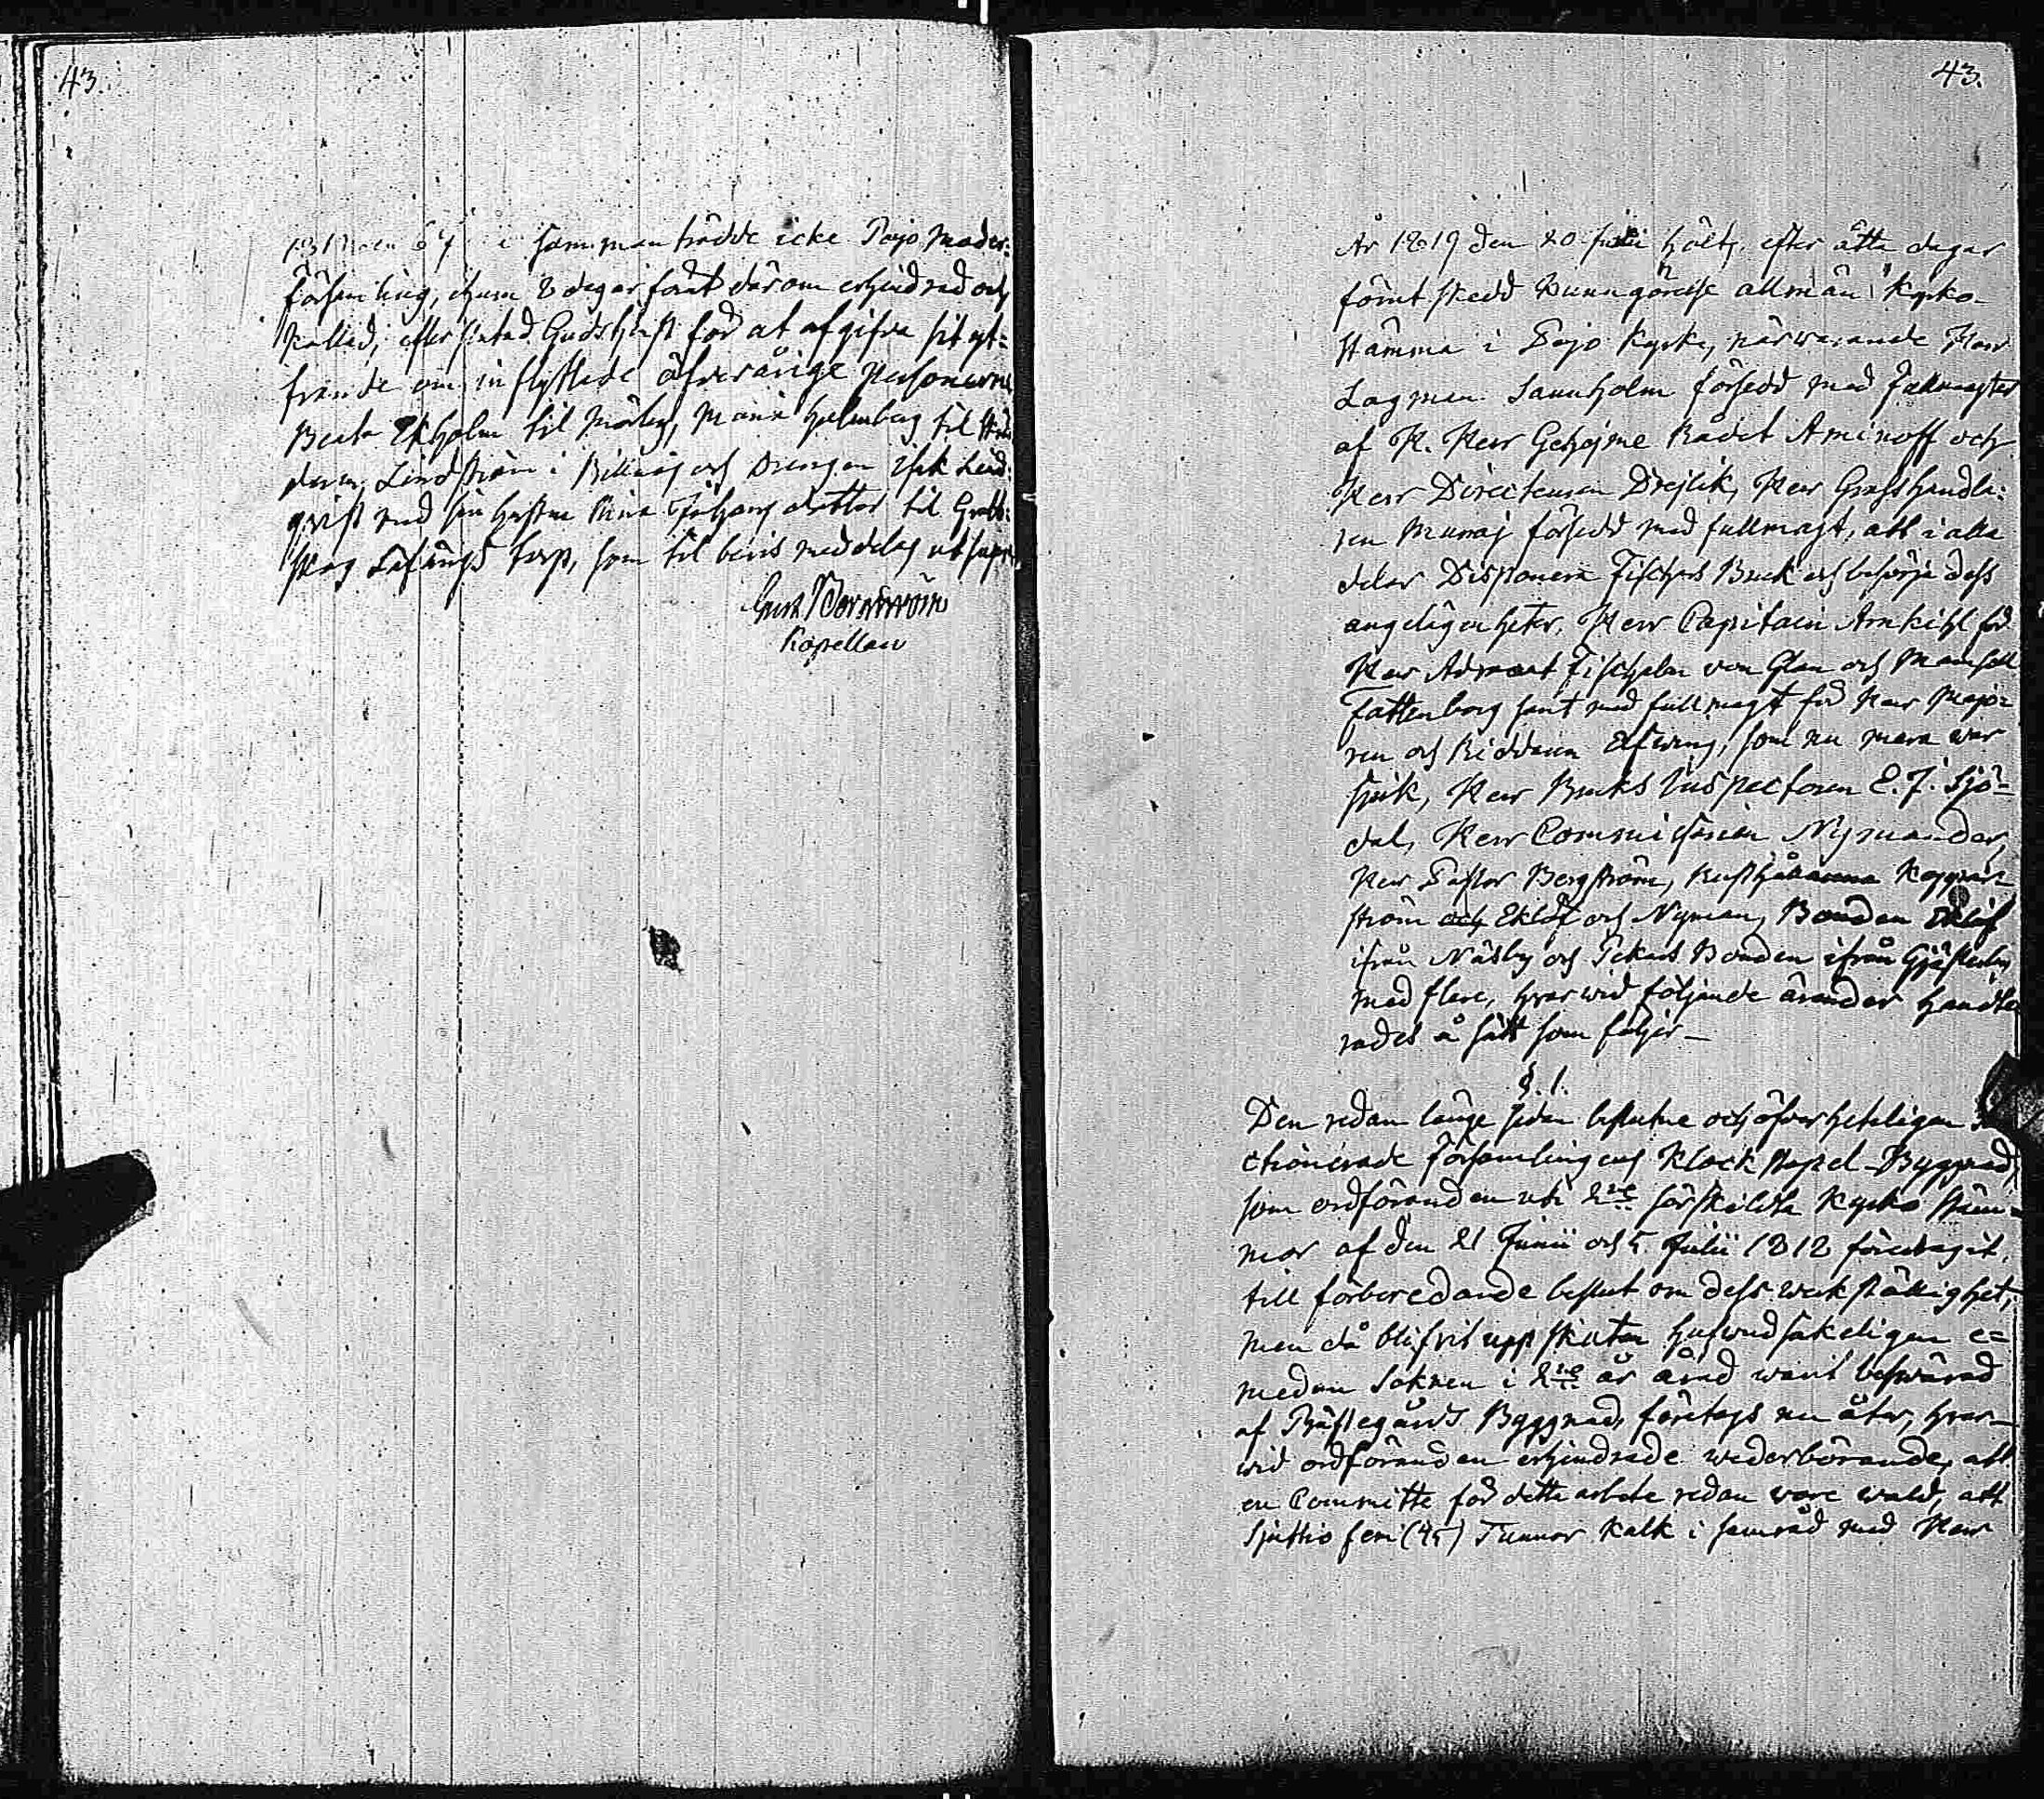 43.
sammanträdde icke Pojo Moder-
församling, ehuru 8 dagar förut därom erhindrad och
kallad, efter slutad Gudstjenst för at afgifva sit ytt-
trande om inflyttade öfverårige personerne
Beata Ekholm til Mörby, Maria Holmberg til
Lindström i Billnäs och Drengen Isak Lind-
qvist med sin hustru Stina Johans dotter til
skog torp, som til bevis meddelas
Gust Bergström
Kapellan
43.
År 1819 den 20 Junii hölts, efter åtta dagar
förut skedd Kunngörelse allmän Kyrko-
stämma i Pojo Kyrka, närwarande Herr
Lagman Sannholm försedd med fullmagter
af H. Herr Gehejme Rådet Aminoff och
Herr Directeuren Dreilick, Herr Grosshandla-
ren Munaj försedd med fullmagt, att i alla
delar Disponera Fiskars Bruk och besörja dess
angelägenheter, Herr Capitain Arnkihl för
Herr von Glan och Mamsell
Fattenborg samt med fullmagt för Herr Majo-
ren och Riddaren Elfving, som nu mera war
sjuk, Herr Bruks Inspectoren E. J. Sjö-
dal, Herr Commissarien Nymander,
Herr Pastor Bergström, Rusthållarena Koppar-
ström och Eklöf och Nyman, Bonden Eklöf
ifrån Näsby och Pekars Bonden ifrån Gjästerby
med flere, hvarwid följande ärender handla-
rades å sätt som följer -
§. 1.
Den redan länge sedan beslutne och öfverheteligen
ctionerade församlingens Klockstapel-Byggnad,
som ordföranden uti 2ne särskildta Kyrko stäm-
mor af den 21 Junii och 5 Julii 1818 föredragit,
till förberedande beslut om dess werkställighet,
men då blifvit uppskuten hufwudsakeligen e-
medan Soknen i 2ne år å rad warit beswärad
af Prästegårds Byggnad, företogs nu åter, hvar-
wid ordföranden erhindrade wederbörande, att
en Committe för detta arbete redan wore wald, att
Sjuttio fem (75) Tunnor Kalk i samråd med Herr